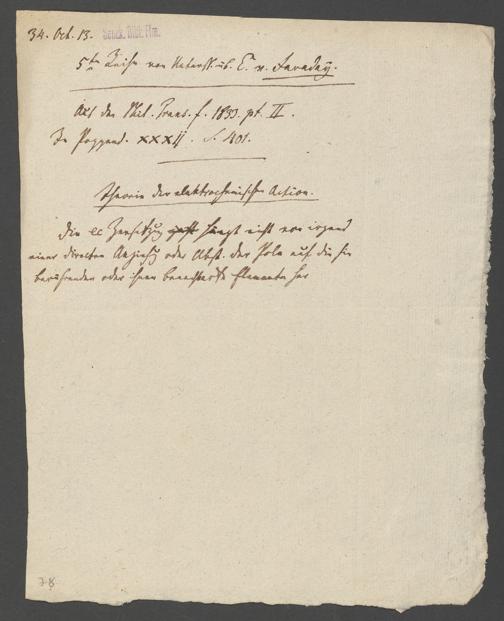 34. Oct. 13. Senck. Bibl. Ffm.
5te Reihe von Unters. üb. E. v. Faraday.
Aus den Phil. Trans. f. 1833. pt. II.
In Poggend. XXXII. S. 401.
Theorie der elektrochemischen Action.
Die el. Zersetzg geht hängt nicht von irgend
einer directen Anziehg oder Abst. der Pole auf die sie
berührenden oder ihnen benachbarte Elemente her
78